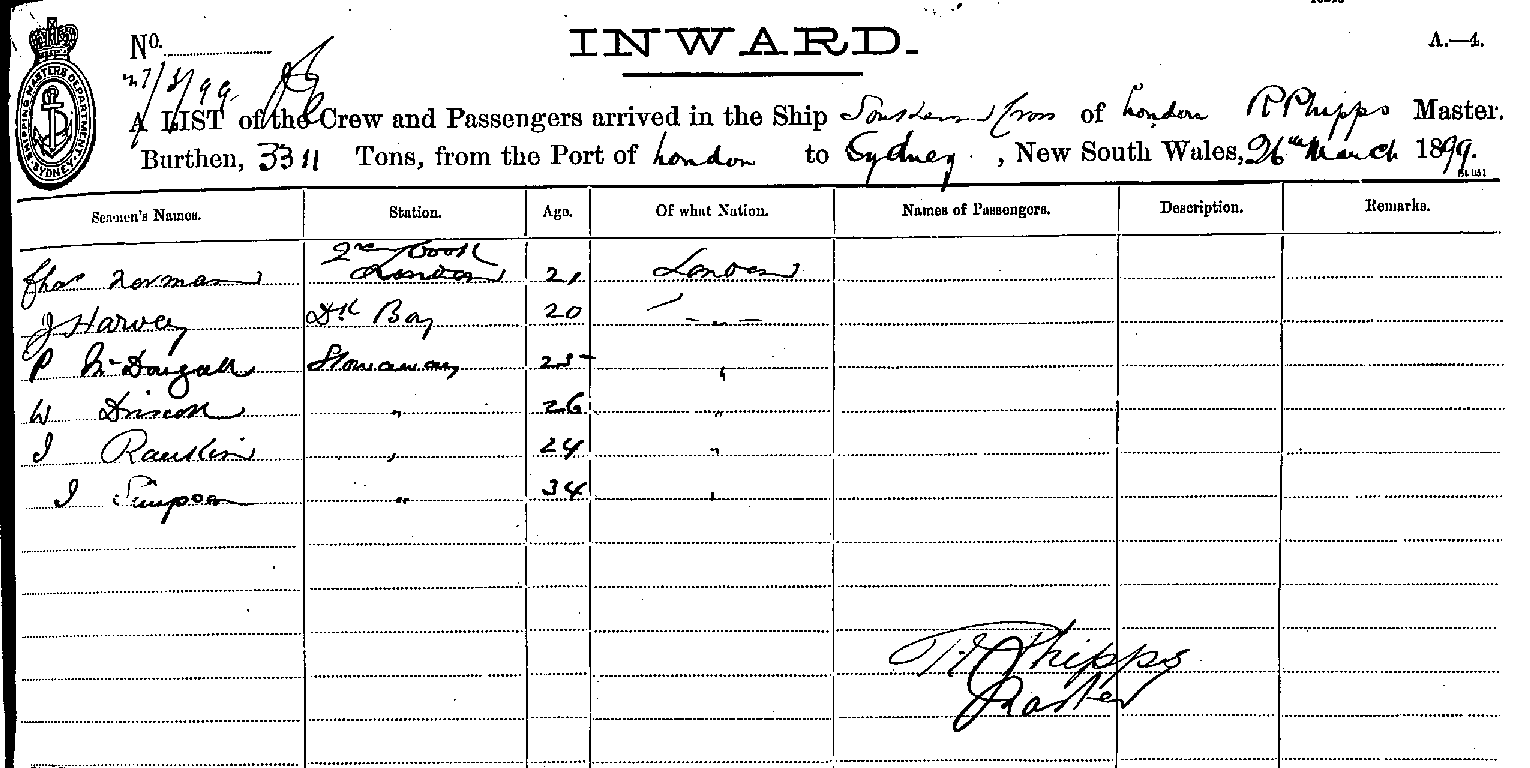 No.
INWARD.
A.—4.
SHIPPING MASTERS DEPARTMENT. SYDNEY.
27/3/99
A LIST of the Crew and Passengers arrived in the Ship Southern Cross of London R Phipps Master.
Burthen, 3311 Tons, from the Port of London to Sydney, New South Wales, 26th March 1899.
Seamen's Names. Station. Age. Of what Nation. Names of Passengers. Description. Remarks.
2nd Cook
Chas Norman London 21 London
J Harvey Dk Boy 20 - " -
P McDougall Stowaway 25 "
W Driscoll " 26 "
J Rankin " 24 "
J Simpson " 34 "
Phipps
Master